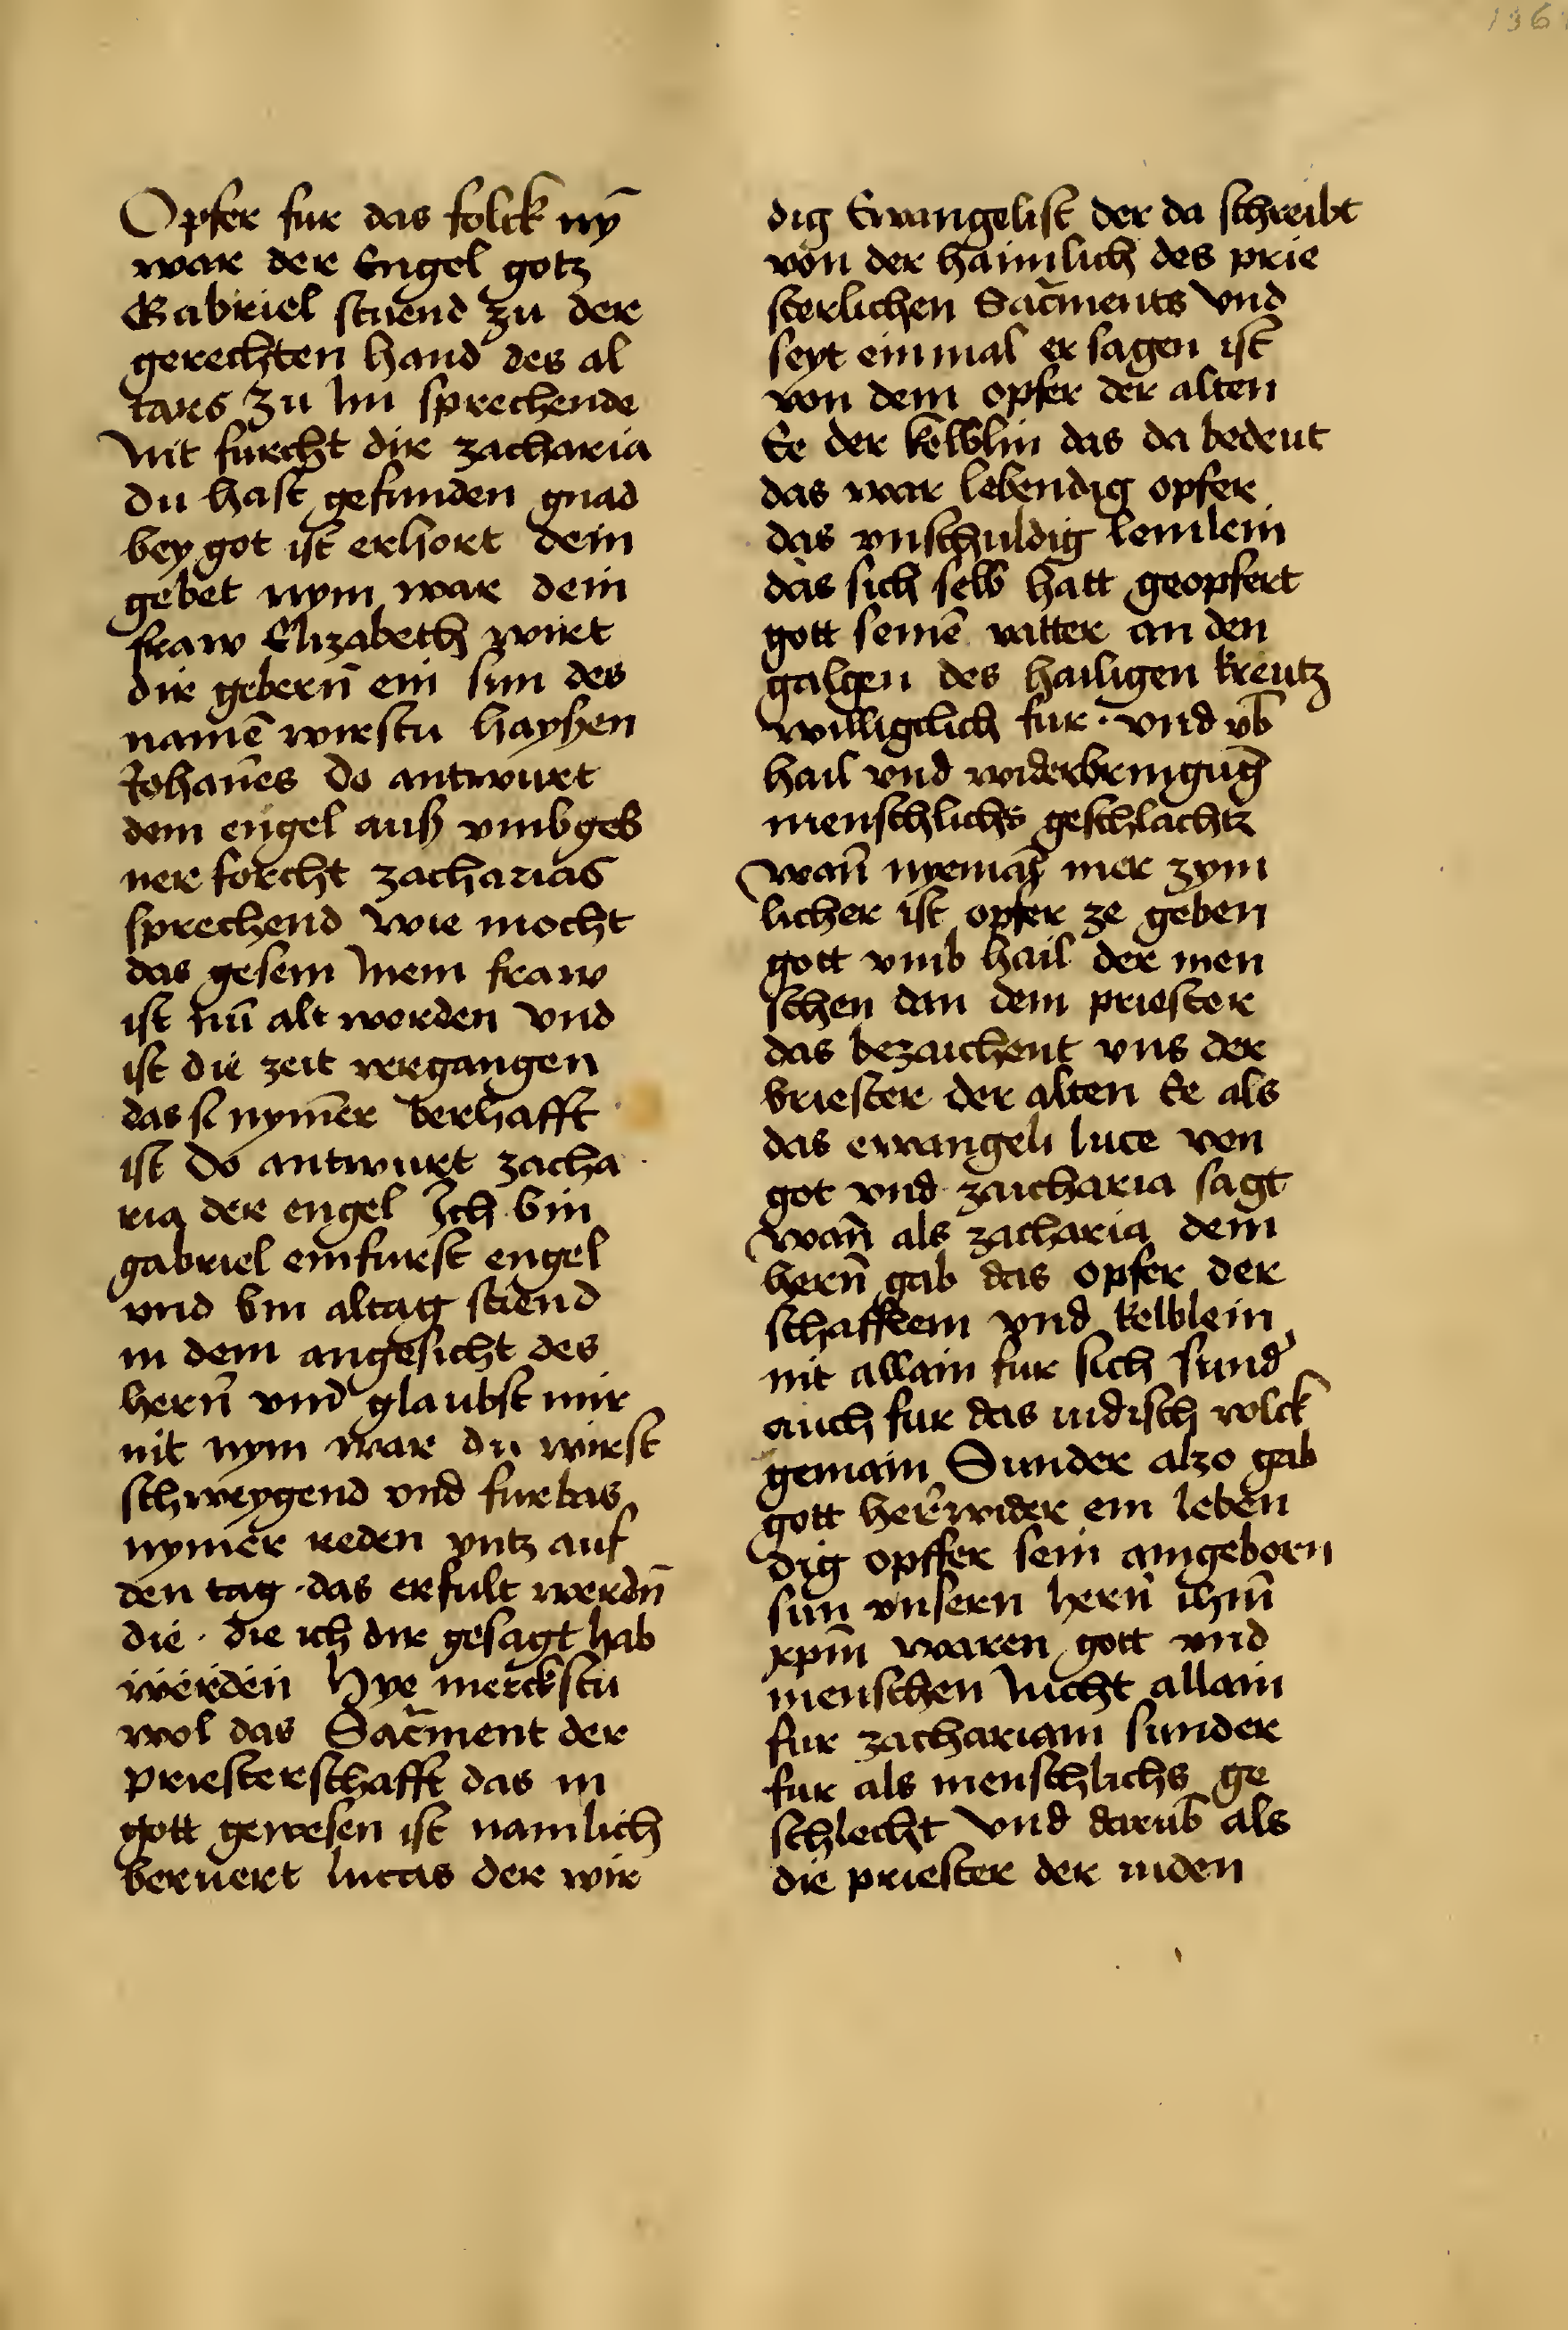 136
Opfer fur das folck nȳ
war der Engel gotz
Gabriel stuend zu der
gerechten hand des al
tars zu Im sprechende
Nit furcht dir zacharia
du hast gefunden gnad
bey got ist erhort dein
gebet nym war dein
fraw Elizabeth wirt
dir gebern̄ ein sun des
namē wirstu hayssen
Johan̄es Do antwurt
dem engel auß vmbgeb
ner forcht zacharias
sprechend Wie mocht
das gesein Mein fraw
ist nū alt worden Vnd
ist die zeit vergangen
das si nym̄er berhafft
ist Do antwurt zacha
ria der engel Ich bin
gabriel ein furst engel
vnd bin altag stend
in dem angesicht des
hern̄ vnd glaubst mir
nit nym war du wirst
schweygend vnd furbas
nymer reden vntz auf
den tag · das erfult werdn̄
die · die ich dir gesagt hab
werden Hye merckstu
wol das Sac̄ment der
priesterschafft das in
gott gewesen ist namlich
beruert lucas der wir
dig Ewangelist der da schreibt
von der haimlich des prie
sterlichen Sac̄ments Vnd
seyt ein mal er sagen ist
von dem opfer der alten
Ee der kelblin das da bedeut
das war lebendig opfer
das vnschuldig lemlein
das sich selb hatt geopfert
gott seinē vatter an den
galgen des hailigen kreutz
willigclich fur · vnd vb̄
hail vnd widerbringūg
menschlichs geschlachtz
Wan̄ nyemāt mer zym
licher ist opfer ze geben
gott vmb hail der men
schen dan dem priester
das bezaichent vns der
briester der alten Ee als
das ewangeli luce von
got vnd zaicharia sagt
Wan̄ als zacharia dem
hern̄ gab das opfer der
schafflein vnd kelblein
nit allain fur sich sund'
auch fur das iudisch volck
gemain Sunder alzo gab
gott her̄wider ein leben
dig opffer sein aingeborn
sun vnsern hern̄ ihm̄
xpm̄ waren gott vnd
menschen Nicht allain
fur zachariam sunder
fur als menschlichs ge
schlecht Vnd darub̄ als
die priester der iuden